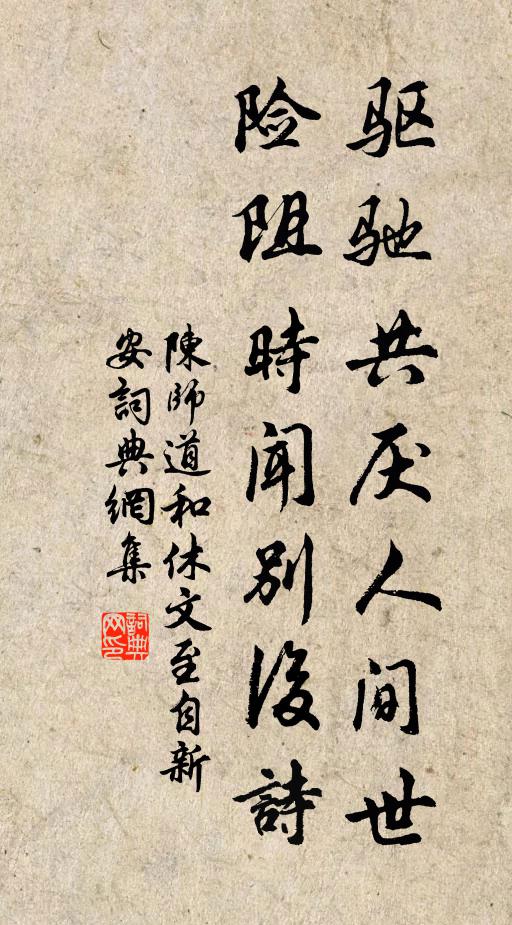 驱驰共厌人间世
险阻時闻别後詩
陳師道和休文至自新
安詞典網集
詞典网印